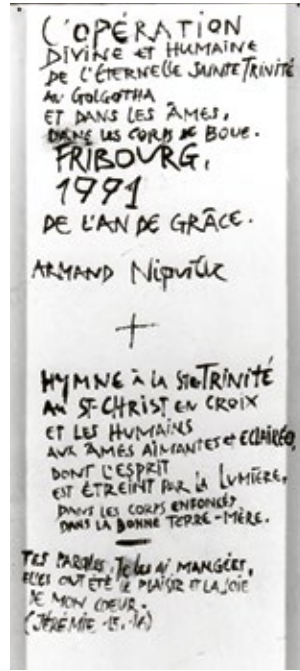 L'OPÉRATION
DIVINE ET HUMAINE
DE L'ÉTERNELLE SAINTE TRINITÉ
AU GOLGOTHA
ET DANS LES ÂMES,
DANS LES CORPS DE BOUE.
FRIBOURG,
1991
DE L'AN DE GRÂCE.
ARMAND
HYMNE À LA STE TRINITÉ
AU ST-CHRIST EN CROIX
ET LES HUMAINS
AUX ÂMES AIMANTES et ECLAIRÉES,
DONT L'ESPRIT
EST ÉTREINT PAR LA LUMIÈRE,
DANS LES CORPS ENFONCÉS
DANS LA BONNE TERRE-MÈRE.
TES PAROLES, JE LES AI MANGÉES,
ELLES ONT ÉTÉ LE PLAISIR ET LA JOIE
DE MON COEUR.
(JÉRÉMIE 15, 16)